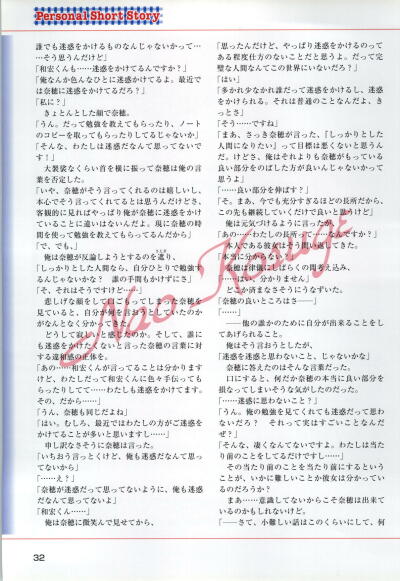 Personal Short Story
誰でも迷惑をかけるものなんじゃないかって…
…そう思うんだけど」
「和宏くんも……迷惑をかけてるんですか？」
「俺なんか色んなひとに迷惑かけてるよ。最近で
は奈穂に迷惑をかけてるだろ？」
「私に？」
きょとんとした顔で奈穂。
「うん。だって勉強を教えてもらったり、ノート
のコピーを取ってもらったりしてるじゃないか」
「そんな、わたしは迷惑だなんて思ってないで
す！」
大袈裟なくらい首を横に振って奈穂は俺の言
葉を否定した。
「いや、奈穂がそう言ってくれるのは嬉しいし、
本心でそう言ってくれてるとは思うんだけどさ、
客観的に見ればやっぱり俺が奈穂に迷惑をかけて
いることに違いはないんだよ。現に奈穂の時
間を使って勉強を教えてもらってるんだから」
「で、でも、」
俺は奈穂が反論しようとするのを遮り、
「しっかりとした人間なら、自分ひとりで勉強す
るんじゃないかな？　誰の手間もかけずにさ」
「そ、それはそうですけど…」
悲しげな顔をして口ごもってしまった奈穂を
見ていると、自分が何を言おうとしていたのか
がなんとなく分かってきた。
どうして寂しいと感じたのか。そして、誰に
も迷惑をかけたくないと言った奈穂の言葉に対
する違和感の正体を。
「あの……和宏くんが言ってることは分かります
けど、わたしだって和宏くんに色々手伝っても
らったりしてて……わたしも迷惑をかけてます。
その、だから……」
「うん、奈穂も同じだよね」
「はい。むしろ、最近ではわたしの方がご迷惑を
かけてることが多いと思いますし……」
申し訳なさそうに奈穂は言った。
「いちおう言っとくけど、俺も迷惑だなんて思っ
てないから」
「……え？」
「奈穂が迷惑だって思ってないように、俺も迷惑
だなんて思ってないよ」
「和宏くん……」
俺は奈穂に微笑んで見せてから、
「思ったんだけど、やっぱり迷惑をかけるのって
ある程度仕方のないことだと思うよ。だって完
璧な人間なんてこの世界にいないだろ？」
「はい」
「多かれ少なかれ誰だって迷惑をかけるし、迷惑
をかけられる。それは普通のことなんだよ、き
っとさ」
「そう……ですね」
「まあ、さっき奈穂が言った、『しっかりとした
人間になりたい』って目標は悪くないと思うん
だ。けどさ、俺はそれよりも奈穂がもっている
良い部分をのばした方が良いんじゃないかって
思うよ」
「……良い部分を伸ばす？」
「そ。まあ、今でも充分すぎるほどの長所だから、
この先も継続していくだけで良いと思うけど」
俺は元気づけるように言ったが、
「あの……わたしの長所って……なんですか？」
本人である彼女はそう問い返してきた。
「本当に分からない？」
奈穂は律儀にしばらくの間考え込み、
「……はい、分かりません」
どこか済まなさそうにうなずいた。
「奈穂の良いところはさ──」
「……」
──他の誰かのために自分が出来ることをし
てあげられること。
俺はそう言おうとしたが、
「迷惑を迷惑と思わないこと、じゃないかな」
奈穂に答えたのはそんな言葉だった。
口にすると、何だか奈穂の本当に良い部分を
損なってしまいそうな気がしたのだった。
「……迷惑に思わないこと？」
「うん。俺の勉強を見てくれても迷惑だって思わ
ないだろ？　それって実はすごいことなんだ
ぞ？」
「そんな、凄くなんてないですよ。わたしは当た
り前のことをしてるだけですし……」
その当たり前のことを当たり前にするという
ことが、いかに難しいことか彼女は分かってい
るのだろうか？
まあ……意識してないからこそ奈穂は出来て
いるのかもしれないけど。
「──さて、小難しい話はこのくらいにして、何
32